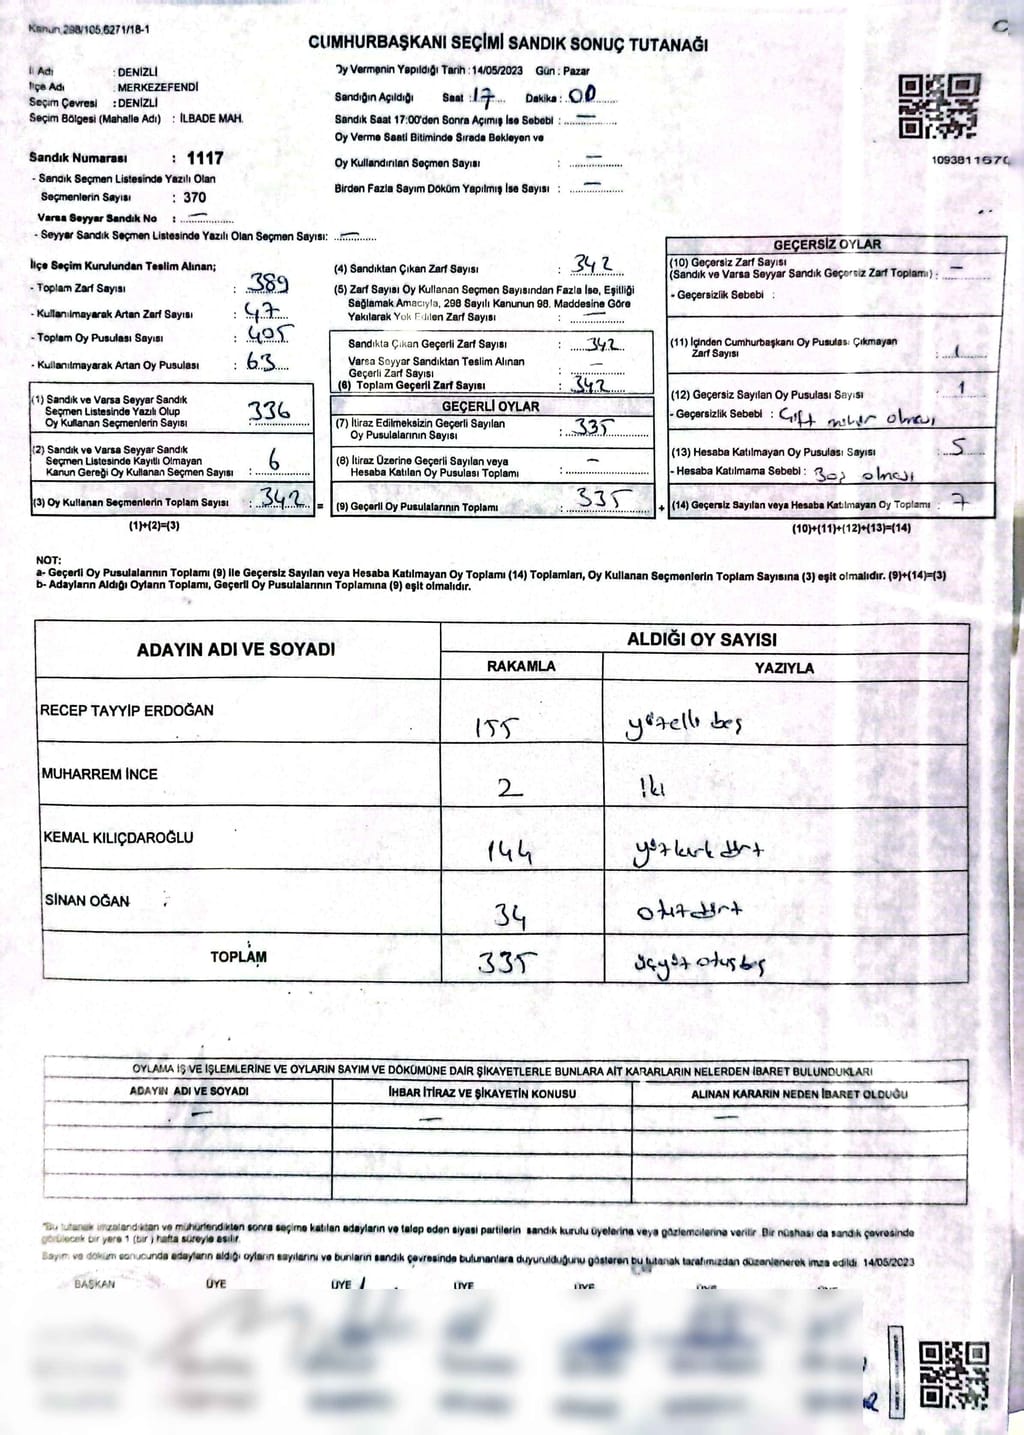 Kanun 298/105,6271/18-1
CUMHURBAŞKANI SEÇİMİ SANDIK SONUÇ TUTANAĞI
İl Adı : DENİZLİ
İlçe Adı : MERKEZEFENDİ
Seçim Çevresi : DENİZLİ
Seçim Bölgesi (Mahalle Adı) : İLBADE MAH.
Oy Vermenin Yapıldığı Tarih : 14/05/2023 Gün : Pazar
Sandığın Açıldığı Saat : 17 Dakika : 00
Sandık Saat 17:00'den Sonra Açımış İse Sebebi : —
Oy Verme Saati Bitiminde Sırada Bekleyen ve
Oy Kullandırılan Seçmen Sayısı : —
Birden Fazla Sayım Döküm Yapılmış İse Sayısı : —
Sandık Numarası : 1117
- Sandık Seçmen Listesinde Yazılı Olan
Seçmenlerin Sayısı : 370
Varsa Seyyar Sandık No : —
- Seyyar Sandık Seçmen Listesinde Yazılı Olan Seçmen Sayısı: —
İlçe Seçim Kurulundan Teslim Alınan;
- Toplam Zarf Sayısı : 389
- Kullanılmayarak Artan Zarf Sayısı : 47
- Toplam Oy Pusulası Sayısı : 405
- Kullanılmayarak Artan Oy Pusulası : 63
(1) Sandık ve Varsa Seyyar Sandık
Seçmen Listesinde Yazılı Olup
Oy Kullanan Seçmenlerin Sayısı : 336
(2) Sandık ve Varsa Seyyar Sandık
Seçmen Listesinde Kayıtlı Olmayan
Kanun Gereği Oy Kullanan Seçmen Sayısı : 6
(3) Oy Kullanan Seçmenlerin Toplam Sayısı : 342 =
(1)+(2)=(3)
(4) Sandıktan Çıkan Zarf Sayısı : 342
(5) Zarf Sayısı Oy Kullanan Seçmen Sayısından Fazla İse, Eşitliği
Sağlamak Amacıyla, 298 Sayılı Kanunun 98. Maddesine Göre
Yakılarak Yok Edilen Zarf Sayısı : —
Sandıkta Çıkan Geçerli Zarf Sayısı : 342
Varsa Seyyar Sandıktan Teslim Alınan
Geçerli Zarf Sayısı : —
(6) Toplam Geçerli Zarf Sayısı : 342
GEÇERLİ OYLAR
(7) İtiraz Edilmeksizin Geçerli Sayılan
Oy Pusulalarının Sayısı : 335
(8) İtiraz Üzerine Geçerli Sayılan veya
Hesaba Katılan Oy Pusulası Toplamı : —
(9) Geçerli Oy Pusulalarının Toplamı : 335 +
1093811570
GEÇERSİZ OYLAR
(10) Geçersiz Zarf Sayısı
(Sandık ve Varsa Seyyar Sandık Geçersiz Zarf Toplamı) : —
- Geçersizlik Sebebi :
(11) İçinden Cumhurbaşkanı Oy Pusulası Çıkmayan
Zarf Sayısı : 1
(12) Geçersiz Sayılan Oy Pusulası Sayısı : 1
- Geçersizlik Sebebi : Çift mühür olması
(13) Hesaba Katılmayan Oy Pusulası Sayısı : 5
- Hesaba Katılmama Sebebi : Boş olması
(14) Geçersiz Sayılan veya Hesaba Katılmayan Oy Toplamı : 7
(10)+(11)+(12)+(13)=(14)
NOT:
a- Geçerli Oy Pusulalarının Toplamı (9) ile Geçersiz Sayılan veya Hesaba Katılmayan Oy Toplamı (14) Toplamları, Oy Kullanan Seçmenlerin Toplam Sayısına (3) eşit olmalıdır. (9)+(14)=(3)
b- Adayların Aldığı Oyların Toplamı, Geçerli Oy Pusulalarının Toplamına (9) eşit olmalıdır.
ADAYIN ADI VE SOYADI ALDIĞI OY SAYISI
RAKAMLA YAZIYLA
RECEP TAYYİP ERDOĞAN 155 yüzelli beş
MUHARREM İNCE 2 iki
KEMAL KILIÇDAROĞLU 144 yüzkırk dört
SİNAN OĞAN 34 otuzdört
TOPLAM 335 üçyüz otuzbeş
OYLAMA İŞ VE İŞLEMLERİNE VE OYLARIN SAYIM VE DÖKÜMÜNE DAİR ŞİKAYETLERLE BUNLARA AİT KARARLARIN NELERDEN İBARET BULUNDUKLARI
ADAYIN ADI VE SOYADI İHBAR İTİRAZ VE ŞİKAYETİN KONUSU ALINAN KARARIN NEDEN İBARET OLDUĞU
— — —
"Bu tutanak imzalandıktan ve mühürlendikten sonra seçime katılan adayların ve talep eden siyasi partilerin sandık kurulu üyelerine veya gözlemcilerine verilir. Bir nüshası da sandık çevresinde
görülecek bir yere 1 (bir) hafta süreyle asılır.
Sayım ve döküm sonucunda adayların aldığı oyların sayılarını ve bunların sandık çevresinde bulunanlara duyurulduğunu gösteren bu tutanak tarafımızdan düzenlenerek imza edildi. 14/05/2023
BAŞKAN ÜYE ÜYE ÜYE ÜYE